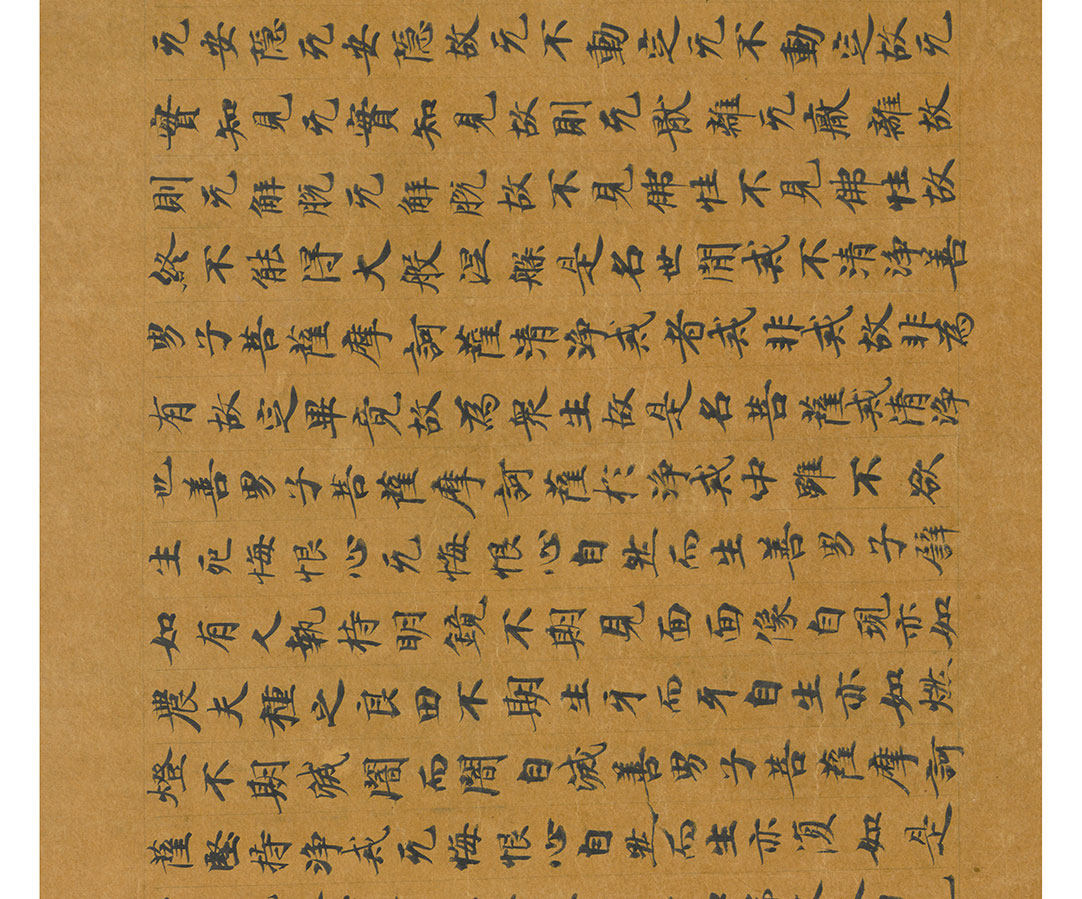 无安隐无安隐故无不動㝎无不動㝎故无
實知見无實知見故則无厭離无厭離故
則无解脱无解脱故不見佛性不見佛性故
終不能得大般涅槃是名世間戒不清淨善
男子菩薩摩訶薩清淨戒者戒非戒故非為
有故㝎畢竟故為衆生故是名菩薩戒清淨
也善男子菩薩摩訶薩於淨戒中雖不欲
生死悔恨心无悔恨心自然而生善男子譬
如有人執持明鏡不期見面面像自現亦如
農夫種之良田不期生牙而牙自生亦如燃
燈不期滅闇而闇自滅善男子菩薩摩訶
薩堅持淨戒无悔恨心自然而生亦復如是